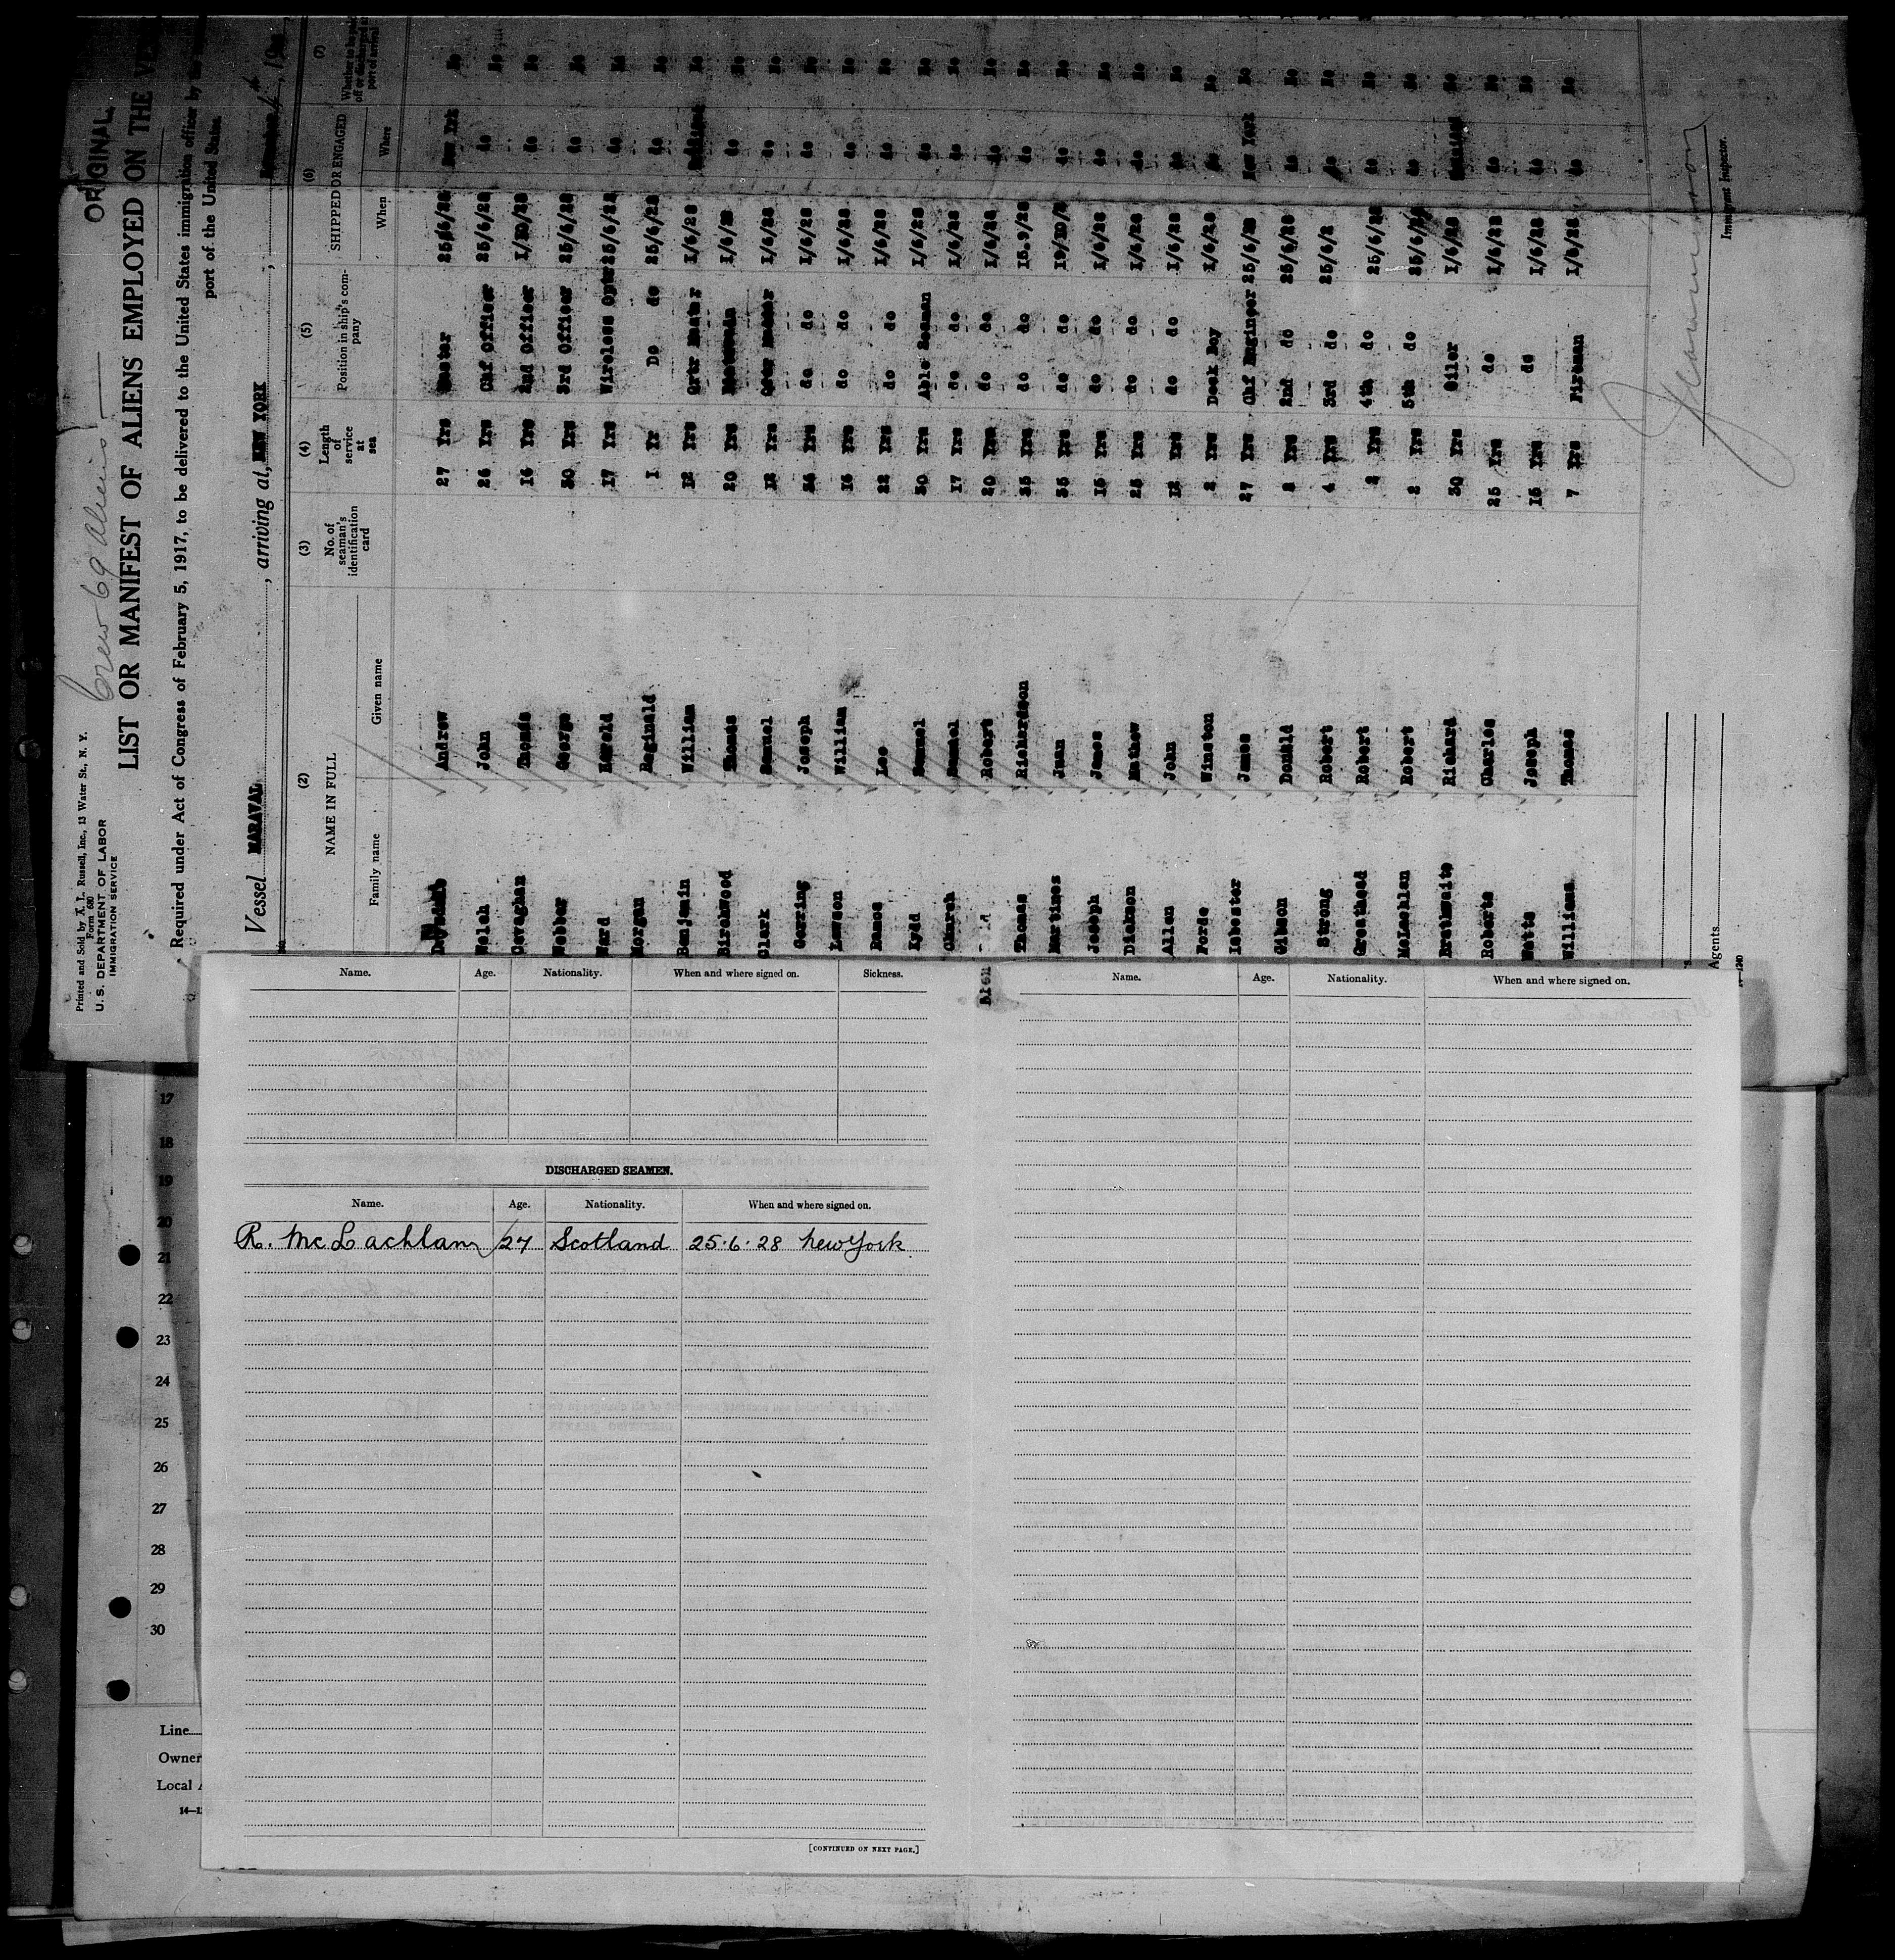 ORIGINAL
Printed and Sold by A. L. Russell, Inc., 13 Water St., N. Y.
Form 680
U. S. DEPARTMENT OF LABOR
IMMIGRATION SERVICE
Crew 69 Aliens
LIST OR MANIFEST OF ALIENS EMPLOYED ON THE
Required under Act of Congress of February 5, 1917, to be delivered to the United States immigration officer by the
port of the United States.
Vessel MARAVAL, arriving at, NEW YORK,
(2) (3) (4) (5) (6) (7)
NAME IN FULL No. of seaman's identification card Length of service at sea Position in ship's company SHIPPED OR ENGAGED
Family name Given name When Where
Andrew 27 Yrs 25/6/28 New Yrk No
Welsh John 26 Yrs Chf Officer 25/6/28 do No
Thomas 16 Yrs 2nd Officer do No
Webber George 30 Yrs 3rd Officer 25/6/28 do No
Ward Harold 17 Yrs Wireless Optr 25/6/28 do No
Morgan Reginald 1 Yr Do do 25/6/28 do No
Benjamin William 12 Yrs 1/6/28 No
Birchwood Thomas 20 Yrs 1/6/28 do No
Clark Samuel 12 Yrs 1/6/28 do No
Gorring Joseph Yrs do do 1/6/28 do No
Lawson William 16 Yrs do do 1/6/28 do No
Ramos Leo 22 Yrs do do 1/6/28 do No
Kydd Samuel 30 Yrs Able Seaman 1/6/28 do No
Samuel 17 Yrs do do 1/6/28 do No
Robert 20 Yrs do do 1/6/28 do No
Thomas Richardson 35 Yrs do do 15.9/28 do No
Martinez Juan 35 Yrs do do do No
Joseph James 15 Yrs do do 1/6/28 do No
Dickson Mathew 25 Yrs do do 1/6/28 do No
Allen John 12 Yrs do do 1/6/28 do No
Forde Winston 2 Yrs Deck Boy 1/6/28 do No
Isbester James 27 Yrs Chf Engineer 25/6/28 New York No
Gibson Donald 2 Yrs 2nd do 25/6/28 do No
Strong Robert 4 Yrs 3rd do 25/6/2 do No
Greathead Robert 2 Yrs 4th do 25/6/28 do No
McLachlan Robert 2 Yrs 5th do 25/6/28 do No
Brathwaite Richard 30 Yrs Oiler 1/6/28 No
Roberts Charles 25 Yrs do 1/6/28 do No
Watts Joseph 15 Yrs do 1/6/28 do No
Williams Thomas 7 Yrs Fireman 1/6/28 do No
Immigrant Inspector.
Agents
Name. Age. Nationality. When and where signed on. Sickness.
DISCHARGED SEAMEN.
Name. Age. Nationality. When and where signed on.
R. McLachlan 27 Scotland 25.6.28 New York
[CONTINUED ON NEXT PAGE.]
Name. Age. Nationality. When and where signed on.
17
18
19
20
21
22
23
24
25
26
27
28
29
30
Line
Owner
Local